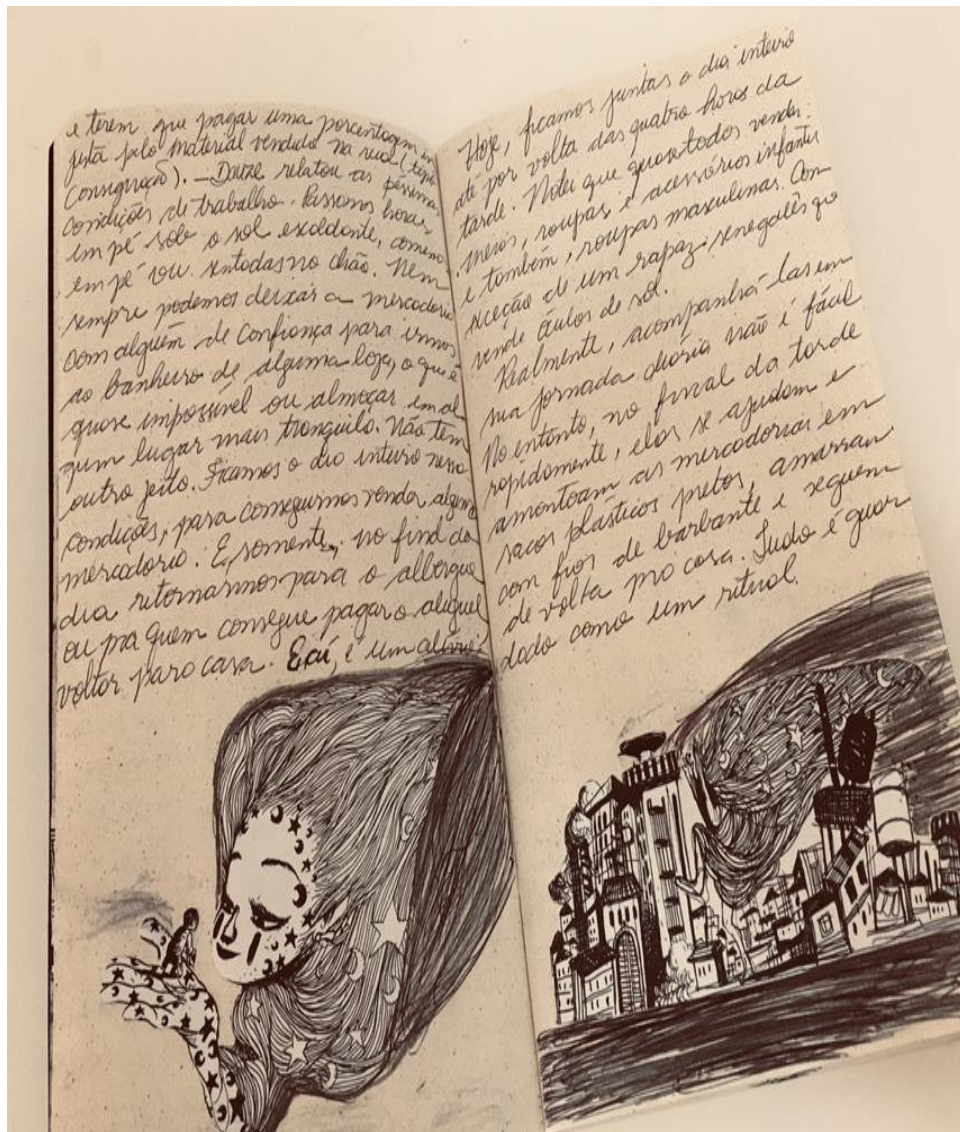 e terem que pagar uma porcentagem in
justa pelo material vendido na rua (tipo
consignação). — Douze relatou as péssimas
condições de trabalho. Passamos horas
em pé sob o sol escaldante, comemos
em pé ou sentadas no chão. Nem
sempre podemos deixar a mercadoria
com alguém de confiança para irmos
ao banheiro de alguma loja, o que é
quase impossível ou almoçar em al
gum lugar mais tranquilo. Não tem
outro jeito. Ficamos o dia inteiro nessa
condições, para conseguirmos vender alguma
mercadoria. E, somente, no final do
dia retornarmos para o albergue
ou pra quem consegue pagar o aluguel
voltar para casa. E aí, é um alívio
Hoje, ficamos juntas o dia inteiro
até por volta das quatro horas da
tarde. Notei que quase todos vendem:
meias, roupas, e acessórios infantis
e também, roupas masculinas. Com
exceção de um rapaz senegalês que
vende óculos de sol.
Realmente, acompanhá-las em
sua jornada diária não é fácil
No entanto, no final da tarde
rapidamente, elas se ajudam e
amontoam as mercadorias em
sacos plásticos pretos, amarram
com fios de barbante e seguem
de volta pra casa. Tudo é guar
dado como um ritual.